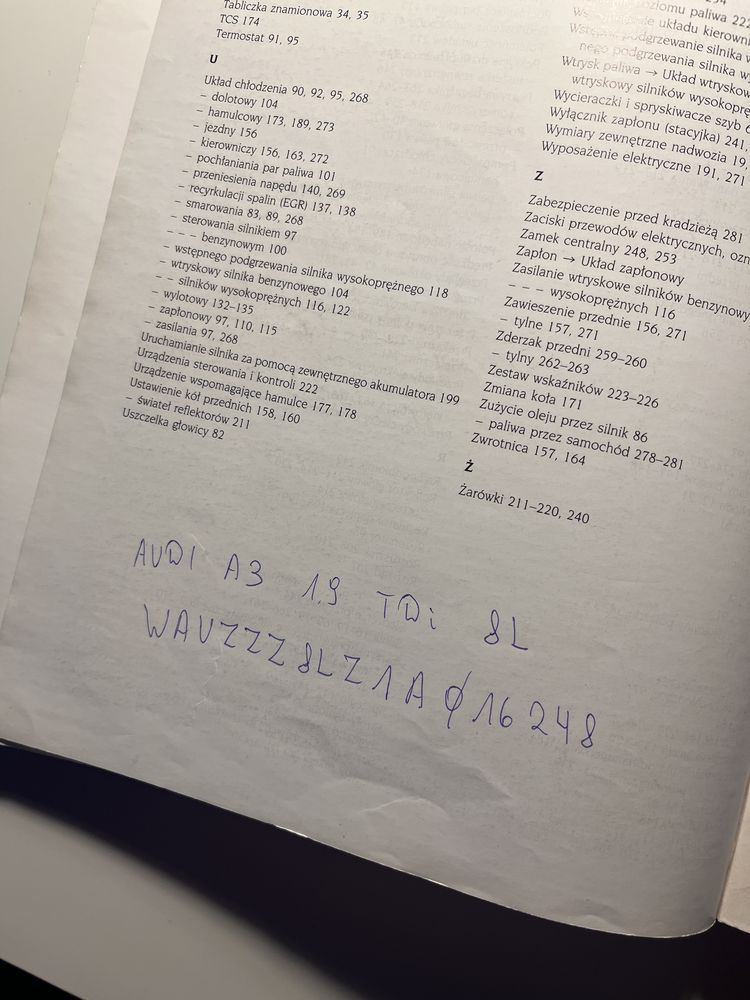 Tabliczka znamionowa 34, 35
TCS 174
Termostat 91, 95
U
Układ chłodzenia 90, 92, 95, 268
– dolotowy 104
– hamulcowy 173, 189, 273
– jezdny 156
– kierowniczy 156, 163, 272
– pochłaniania par paliwa 101
– przeniesienia napędu 140, 269
– recyrkulacji spalin (EGR) 137, 138
– smarowania 83, 89, 268
– sterowania silnikiem 97
– – – benzynowym 100
– wstępnego podgrzewania silnika wysokoprężnego 118
– wtryskowy silnika benzynowego 104
– – silników wysokoprężnych 116, 122
– wylotowy 132–135
– zapłonowy 97, 110, 115
– zasilania 97, 268
Uruchamianie silnika za pomocą zewnętrznego akumulatora 199
Urządzenia sterowania i kontroli 222
Urządzenie wspomagające hamulce 177, 178
Ustawienie kół przednich 158, 160
– świateł reflektorów 211
Uszczelka głowicy 82
poziomu paliwa 222
układu kierowni
podgrzewanie silnika w
nego podgrzewania silnika wy
Wtrysk paliwa → Układ wtryskow
wtryskowy silników wysokoprę
Wycieraczki i spryskiwacze szyb 6
Wyłącznik zapłonu (stacyjka) 241,
Wymiary zewnętrzne nadwozia 19,
Wyposażenie elektryczne 191, 271
Z
Zabezpieczenie przed kradzieżą 281
Zaciski przewodów elektrycznych, ozn
Zamek centralny 248, 253
Zapłon → Układ zapłonowy
Zasilanie wtryskowe silników benzynowy
– – – wysokoprężnych 116
Zawieszenie przednie 156, 271
– tylne 157, 271
Zderzak przedni 259–260
– tylny 262–263
Zestaw wskaźników 223–226
Zmiana koła 171
Zużycie oleju przez silnik 86
– paliwa przez samochód 278–281
Zwrotnica 157, 164
Ż
Żarówki 211–220, 240
AUDI A3 1.9 TDi 8L
WAUZZZ8LZ1A016248